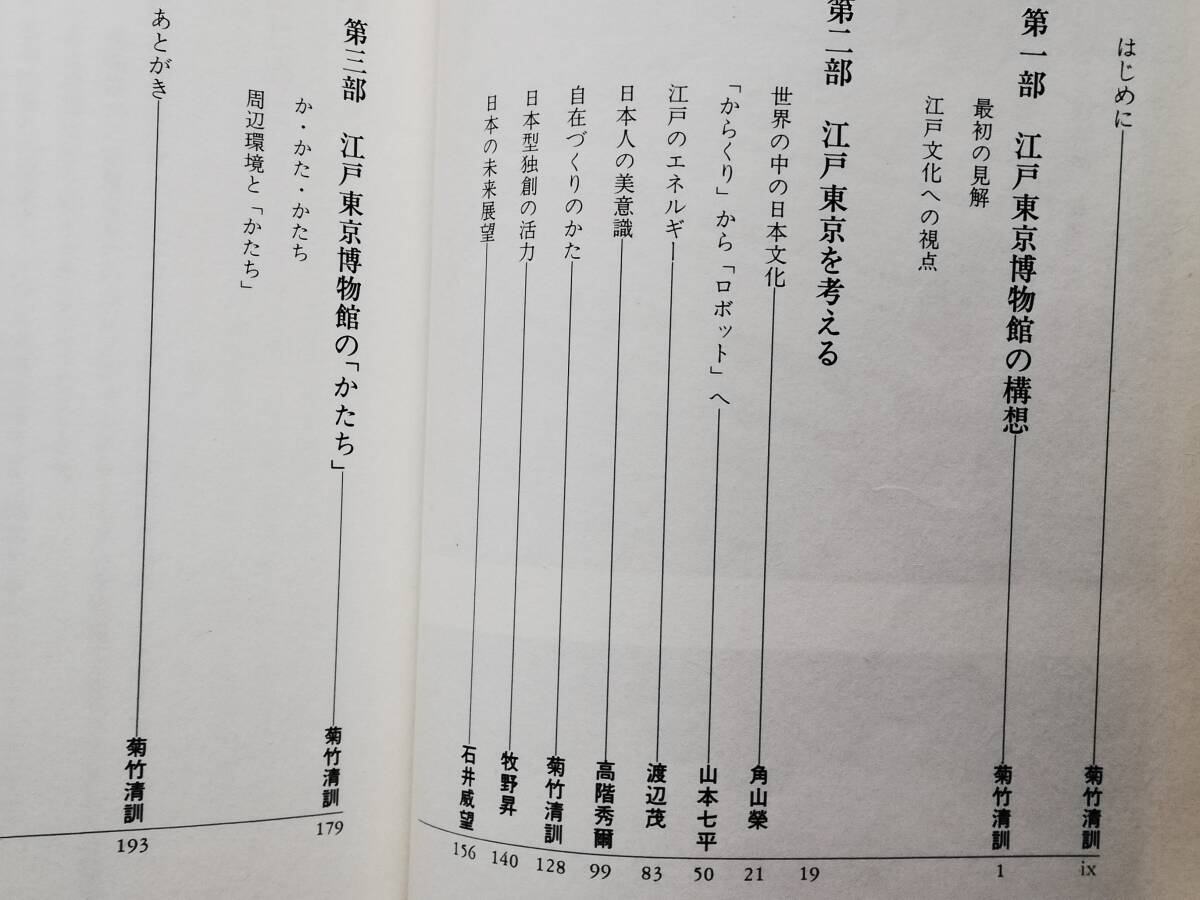 はじめに 菊竹清訓 ix
第一部 江戸東京博物館の構想 菊竹清訓 1
最初の見解
江戸文化への視点
第二部 江戸東京を考える 19
世界の中の日本文化 角山榮 21
「からくり」から「ロボット」へ 山本七平 50
江戸のエネルギー 渡辺茂 83
日本人の美意識 高階秀爾 99
自在づくりのかた 菊竹清訓 128
日本型独創の活力 牧野昇 140
日本の未来展望 石井威望 156
第三部 江戸東京博物館の「かたち」 菊竹清訓 179
か・かた・かたち
周辺環境と「かたち」
あとがき 菊竹清訓 193